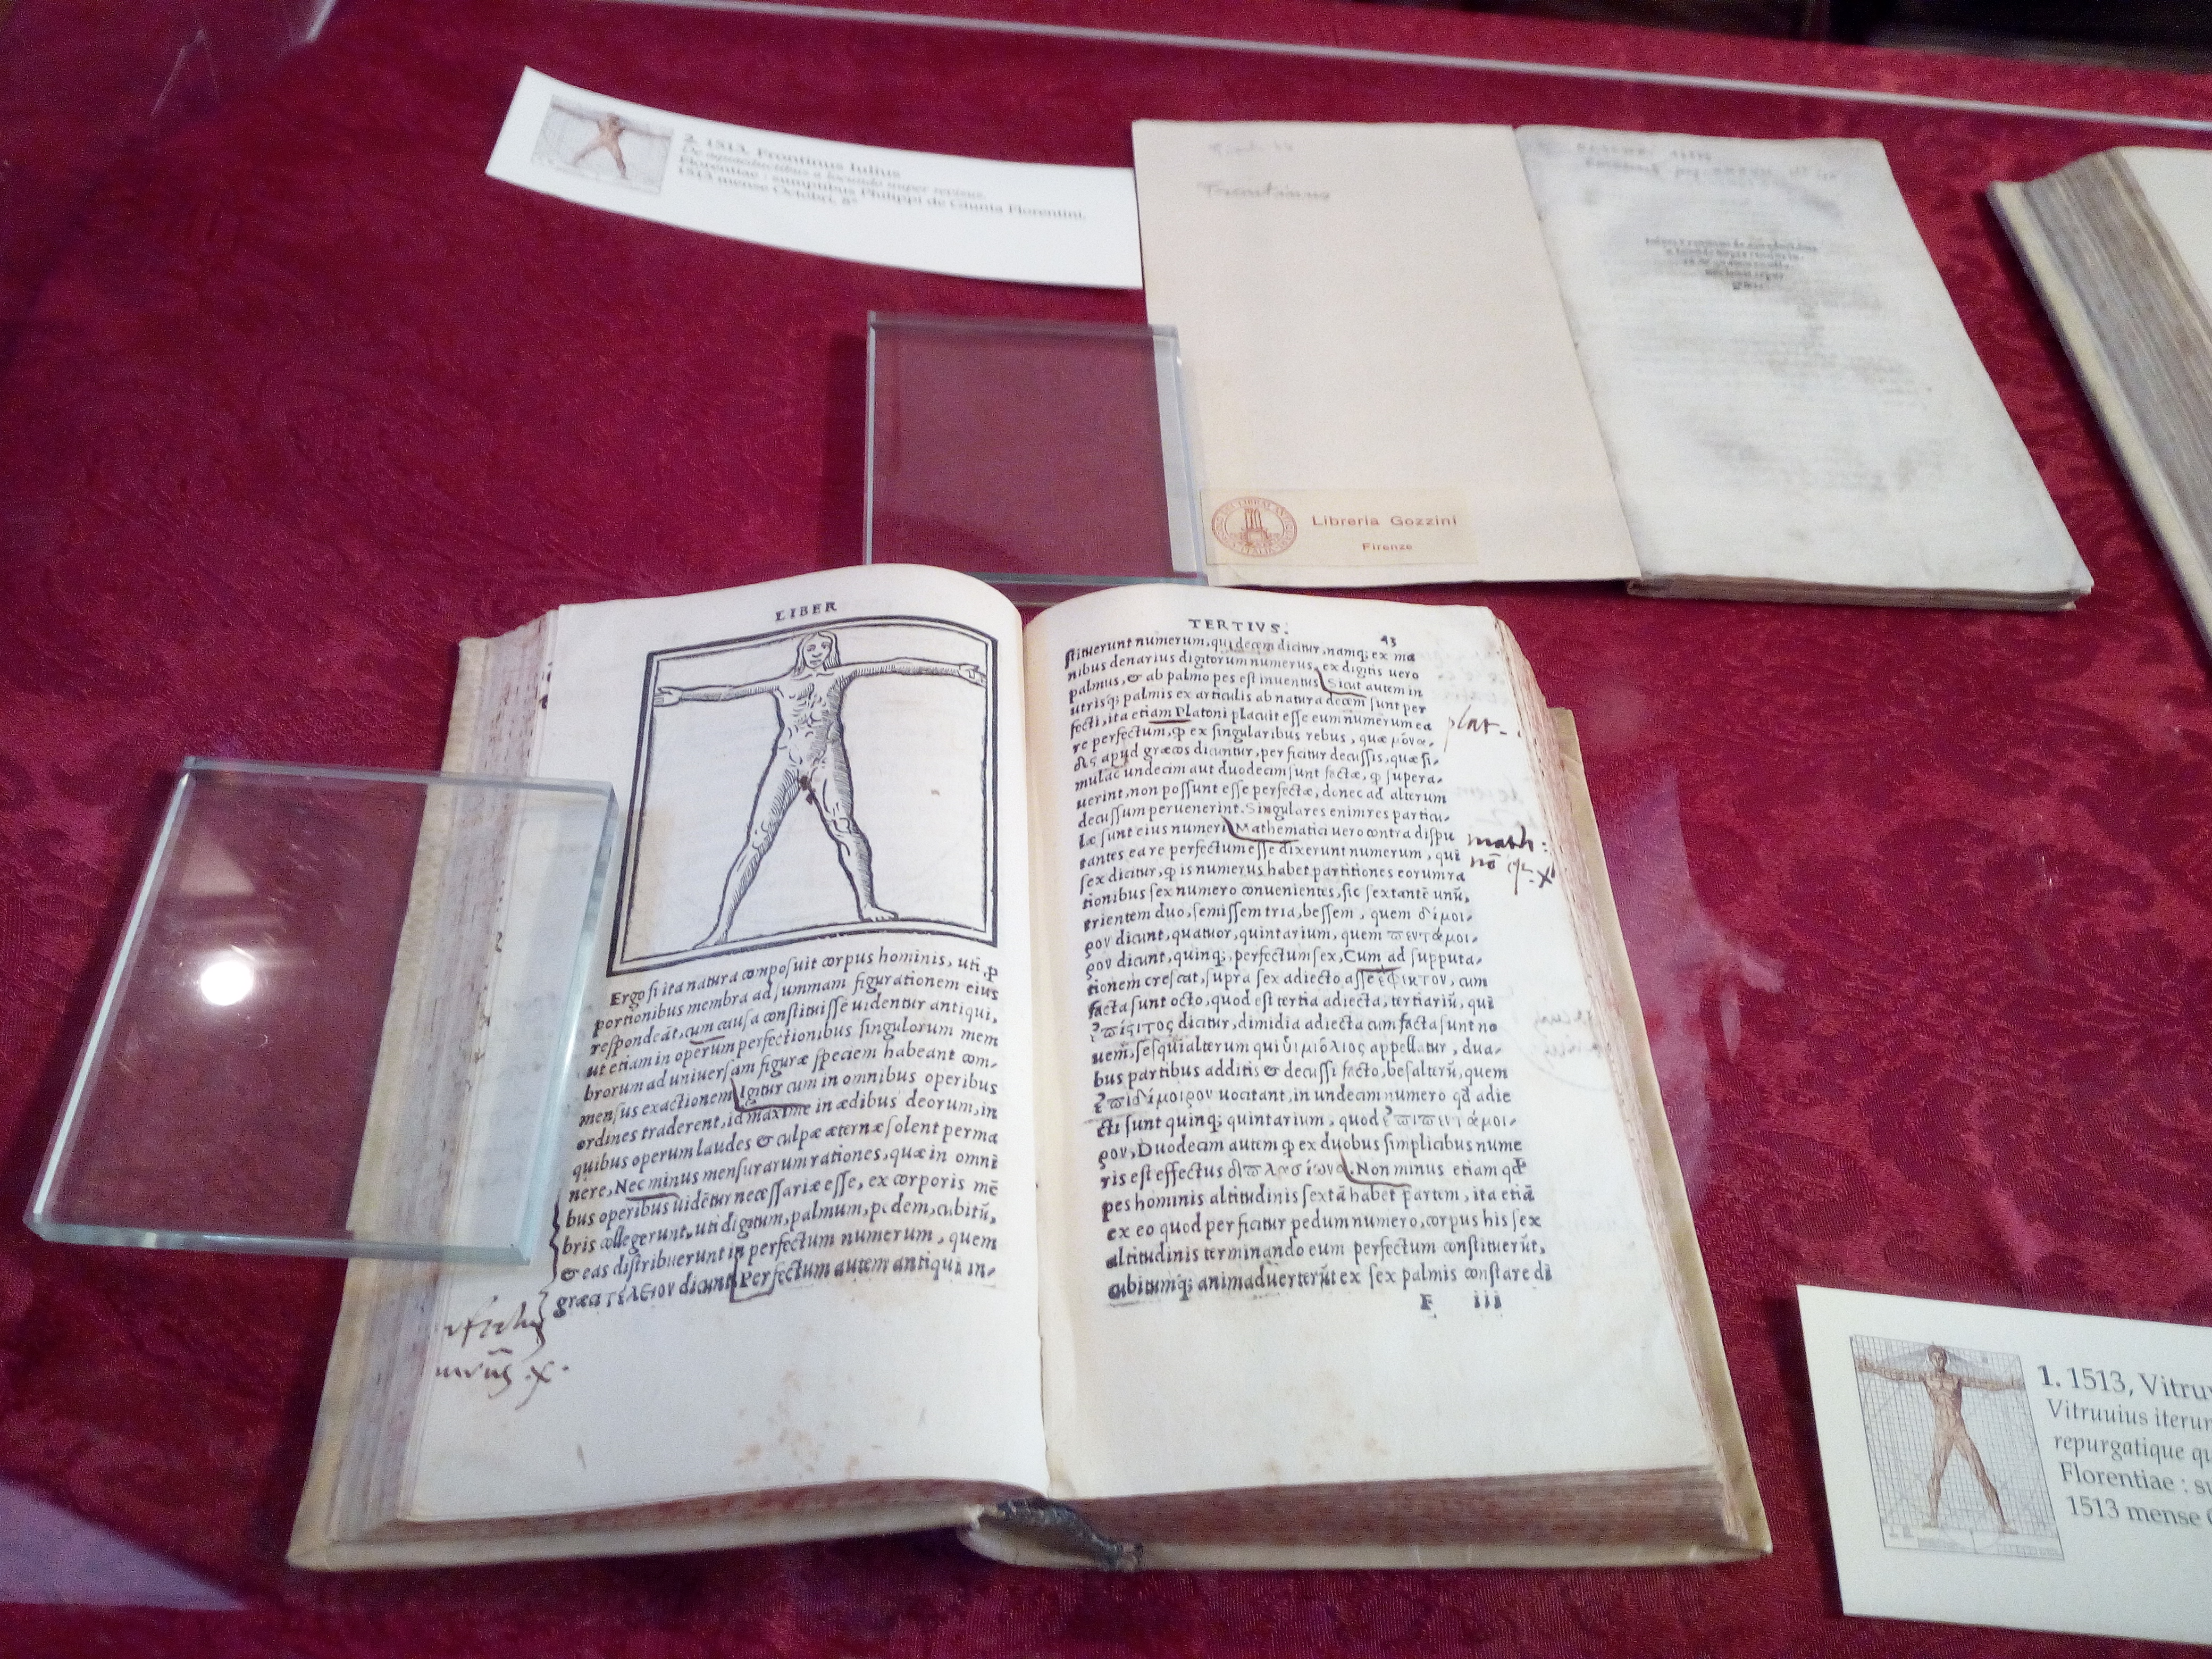 2. 1513. Frontinus Iulius
De aquaeductibus a Iocundo nuper revisus.
Florentiae : sumptibus Philippi de Giunta Florentini,
1513 mense Octobri, 8°
Frontinus
Libreria Gozzini
Firenze
LIBER
Ergo si ita natura composuit corpus hominis, uti ꝓ
portionibus membra ad summam figurationem eius
respondeāt, cum causa constituisse uidentur antiqui,
ut etiam in operum perfectionibus singulorum mem
brorum ad uniuersam figuræ speciem habeant com-
mensus exactionem. Igitur cum in omnibus operibus
ordines traderent, id maxime in ædibus deorum, in
quibus operum laudes & culpæ æternæ solent perma
nere, Nec minus mensurarum rationes, quæ in omnĭ
bus operibus uidētur necessariæ esse, ex corporis mē
bris collegerunt, uti digitum, palmum, pedem, cubitū,
& eas distribuerunt in perfectum numerum, quem
græci τέλειον dicunt. Perfectum autem antiqui in-
TERTIVS. 43
stituerunt numerum, qui decem dicitur, namq; ex ma
nibus denarius digitorum numerus, ex digitis uero
palmus, & ab palmo pes est inuentus. Sicut autem in
utrisq; palmis ex articulis ab natura decem sunt per
fecti, ita etiam Platoni placuit esse eum numerum ea
re perfectum, ꝙ ex singularibus rebus, quæ μόνα-
δες apud græcos dicuntur, perficitur decussis, quæ si-
mulac undecim aut duodecim sunt factæ, ꝙ supera-
uerint, non possunt esse perfectæ, donec ad alterum
decussum peruenerint. Singulares enim res particu-
læ sunt eius numeri. Mathematici uero contra dispu
tantes ea re perfectum esse dixerunt numerum, qui
sex dicitur, ꝙ is numerus habet partitiones eorum ra
tionibus sex numero conuenientes, sic sextantē unū,
trientem duo, semissem tria, bessem, quem δίμοι-
ρον dicunt, quatuor, quintarium, quem πεντάμοι-
ρον dicunt, quinq; perfectum sex, Cum ad supputa-
tionem crescat, supra sex adiecto asse ἔφεκτον, cum
facta sunt octo, quod est tertia adiecta, tertiariū, qui
ἐπίτριτος dicitur, dimidia adiecta cum facta sunt no
uem, sesquialterum qui ἡμιόλιος appellatur, dua-
bus partibus additis & decussi facto, besalterū, quem
ἐπιδίμοιρον uocitant, in undecim numero qđ adie
cti sunt quinq; quintarium, quod ἐπιπεντάμοι-
ρον, Duodecim autem ꝙ ex duobus simplicibus nume
ris est effectus διπλασίωνα. Non minus etiam qđ
pes hominis altitudinis sextā habet partem, ita etiā
ex eo quod perficitur pedum numero, corpus his sex
altitudinis terminando eum perfectum constituerūt,
cubitumq; animaduerterūt ex sex palmis constare di
F iii
plat.
math:
nō
1. 1513, Vitruv
Vitruuius iterum
repurgatique qu
Florentiae : su
1513 mense O